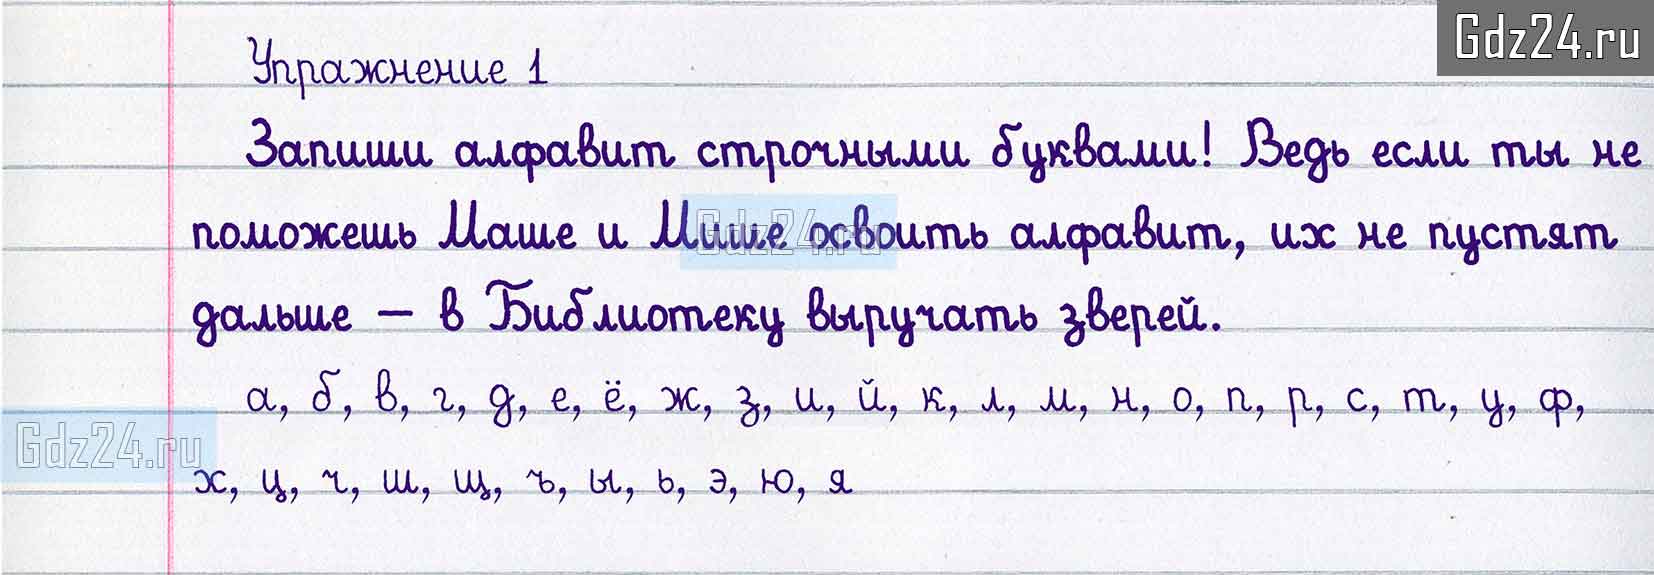 Gdz24.ru
Упражнение 1
Запиши алфавит строчными буквами! Ведь если ты не
поможешь Маше и Мише освоить алфавит, их не пустят
Gdz24.ru
дальше — в Библиотеку выручать зверей.
а, б, в, г, д, е, ё, ж, з, и, й, к, л, м, н, о, п, р, с, т, у, ф,
Gdz24.ru
х, ц, ч, ш, щ, ъ, ы, ь, э, ю, я